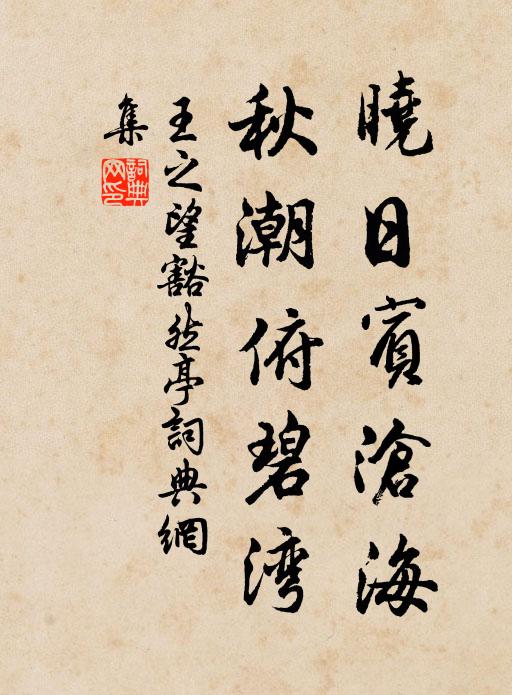 曉日賓滄海
秋潮俯碧湾
王之望豁然亭詞典網
集
詞典網印